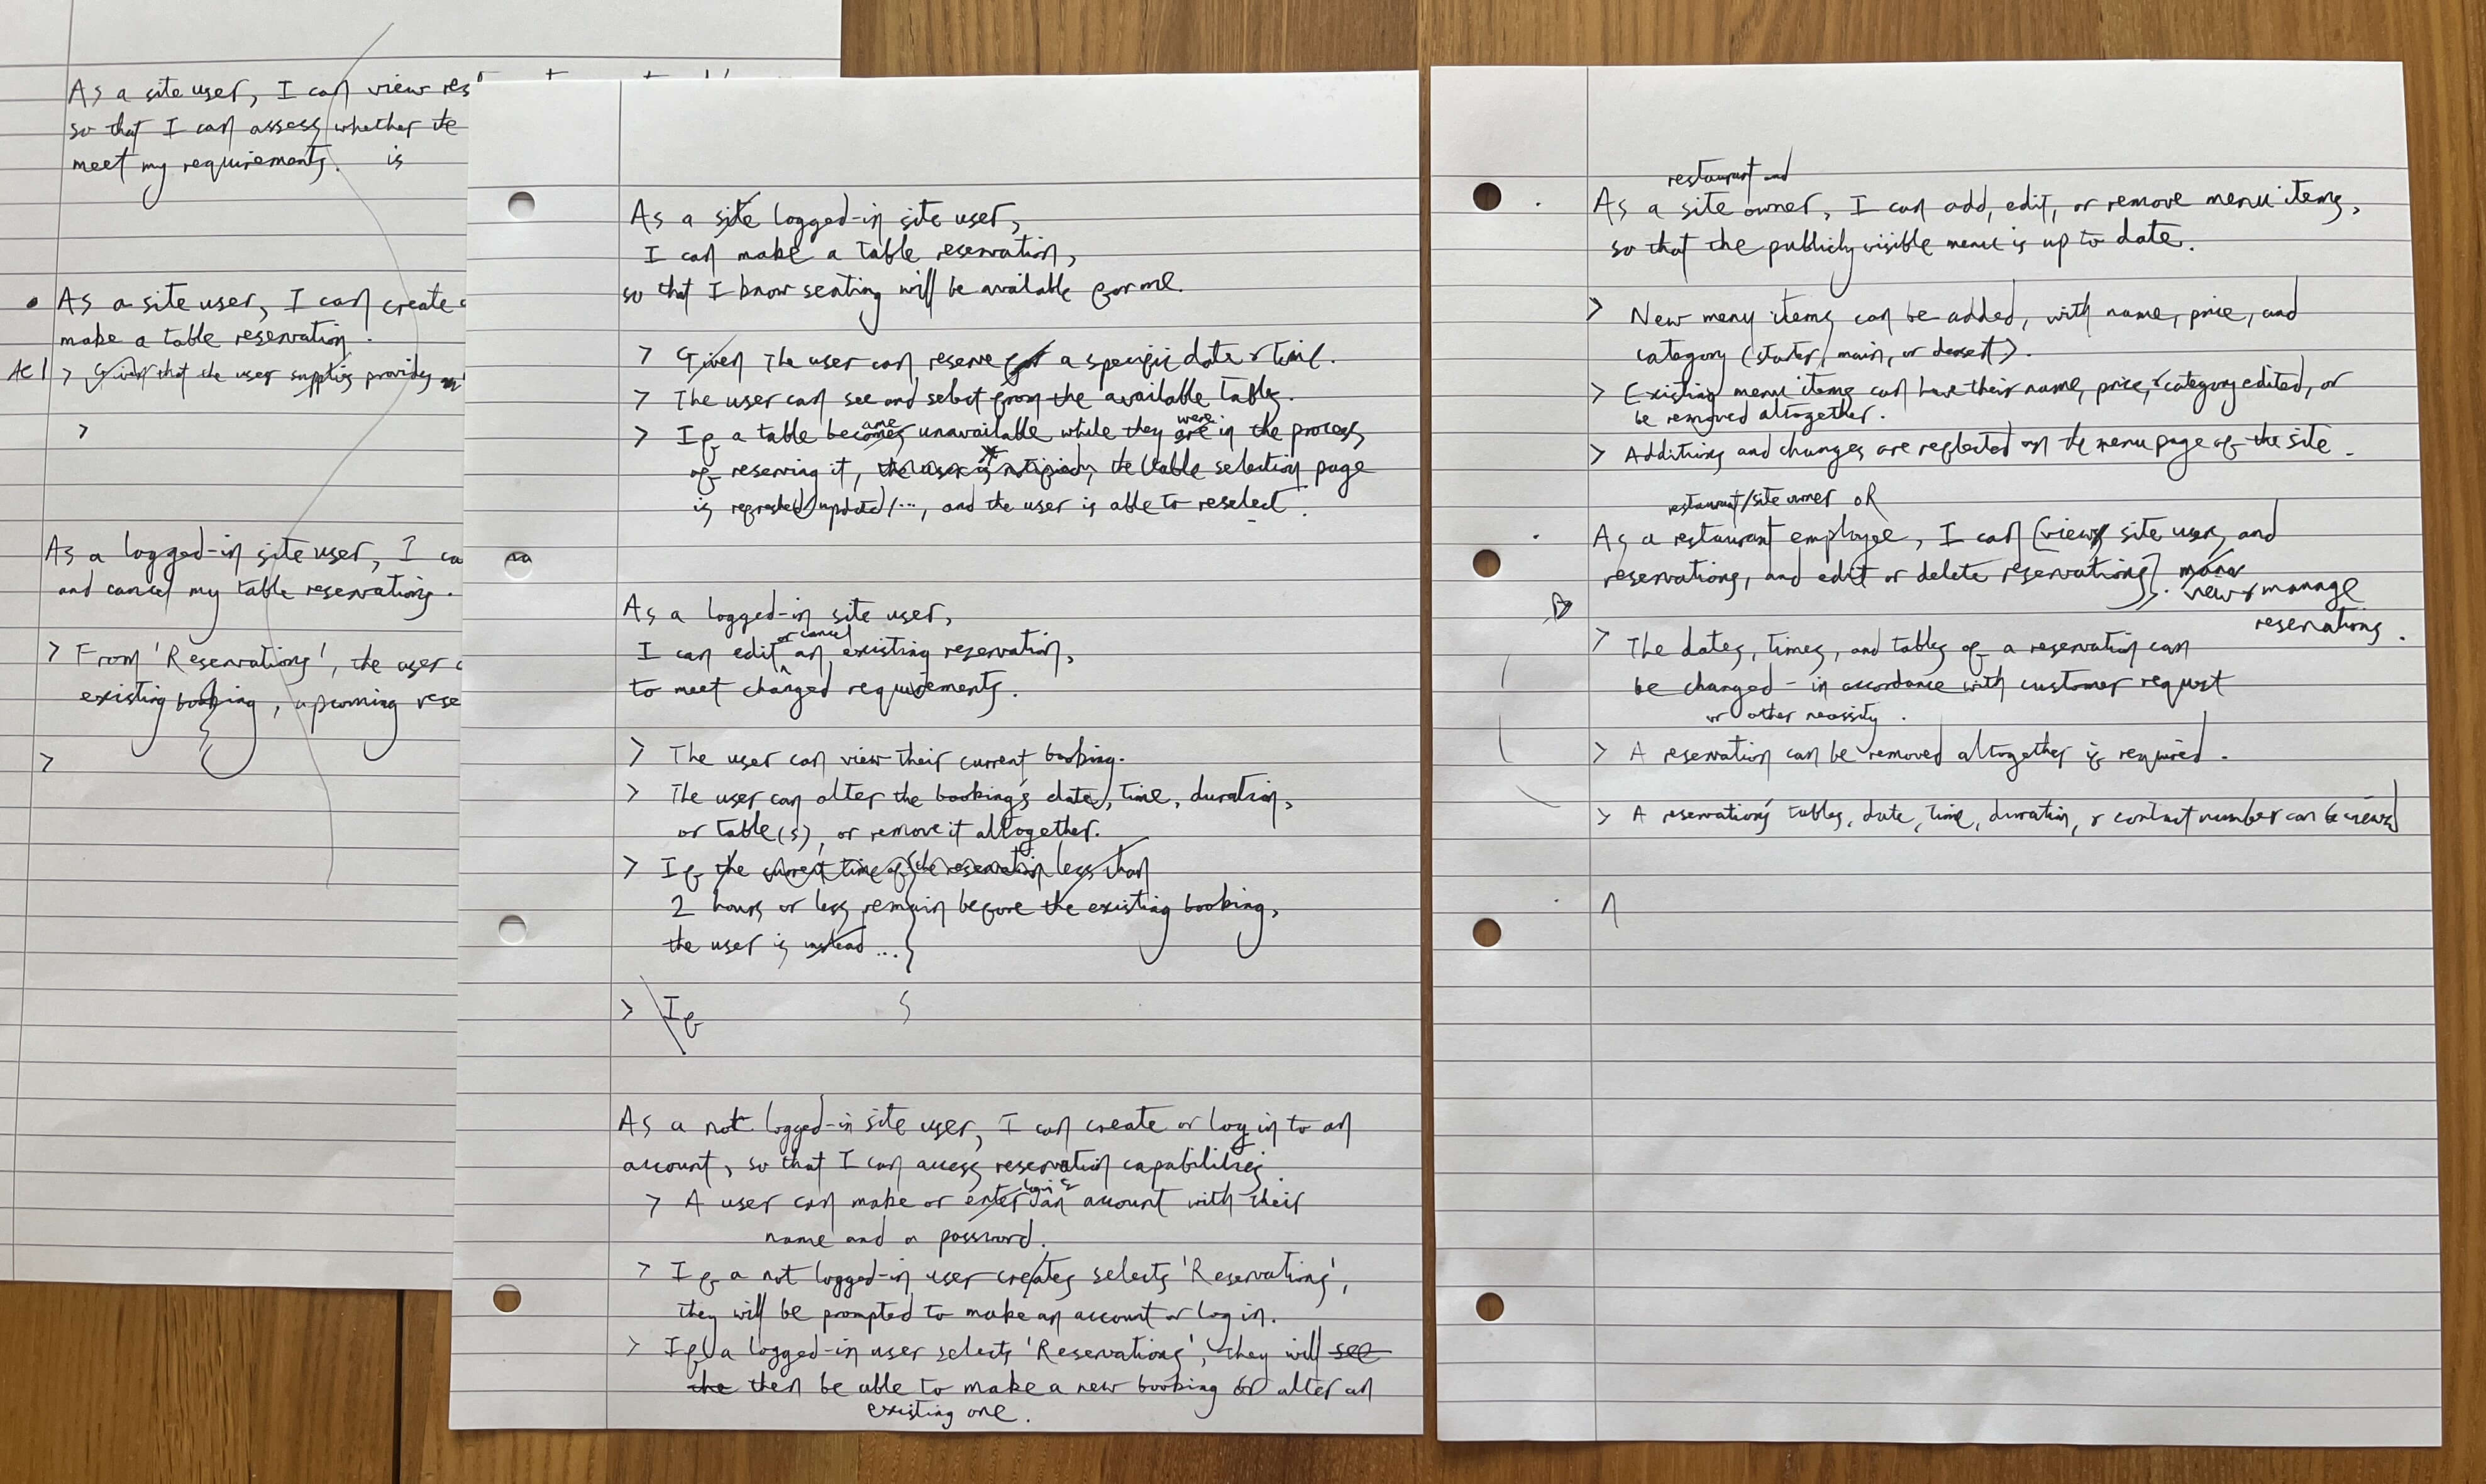 As a site user, I can view res
so that I can assess whether the
meet my requirements. is
As a site user, I can create
make a table reservation.
AC1 > Given that the user supplies provides
>
As a logged-in site user, I ca
and cancel my table reservations.
> From 'Reservations', the user
existing booking, upcoming rese
>
As a site logged-in site user,
I can make a table reservation,
so that I know seating will be available for me.
> Given The user can reserve for a specific date & time.
> The user can see and select from the available tables.
ame were
> If a table becomes unavailable while they are in the process
of reserving it, the user is notified, the table selection page
is refreshed/updated/..., and the user is able to reselect.
As a logged-in site user,
or cancel
I can edit an existing reservation,
to meet changed requirements.
> The user can view their current booking.
> The user can alter the booking's date, time, duration,
or table(s), or remove it altogether.
> If the current time of the reservation less than
2 hours or less remain before the existing booking,
the user is instead ...
> If
As a not logged-in site user, I can create or log in to an
account, so that I can access reservation capabilities.
login to
> A user can make or enter an account with their
name and a password.
> If a not logged-in user creates selects 'Reservations',
they will be prompted to make an account or log in.
> If a logged-in user selects 'Reservations', they will see
the then be able to make a new booking or alter an
existing one.
restaurant and
As a site owner, I can add, edit, or remove menu items,
so that the publicly visible menu is up to date.
> New menu items can be added, with name, price, and
category (starter, main, or dessert).
> Existing menu items can have their name, price, & category edited, or
be removed altogether.
> Additions and changes are reflected on the menu page of the site.
restaurant/site owner OR
As a restaurant employee, I can [view site users, and
reservations, and edit or delete reservations]. mana
view & manage
reservations.
> The dates, times, and tables of a reservation can
be changed - in accordance with customer request
or other necessity.
> A reservation can be removed altogether if required.
> A reservation's tables, date, time, duration, & contact number can be viewed